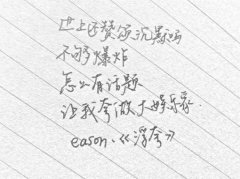 世上还赞颂沉默吗
不够爆炸
怎么有话题
让我夸做大娱乐家.
eason.《浮夸》